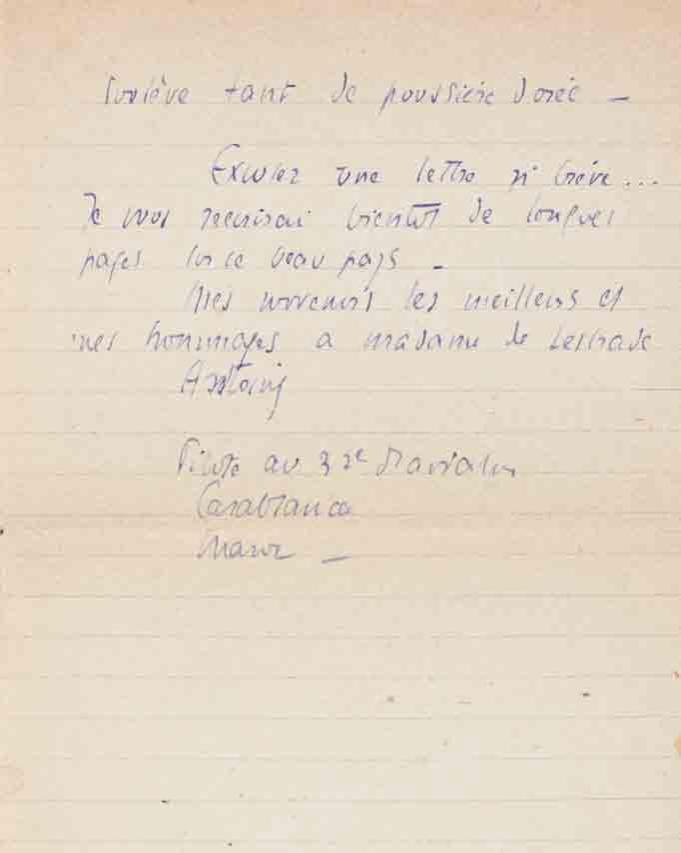 soulève tant de poussière dorée —
Excusez une lettre si brève...
Je vous réecrirai bientôt de longues
pages sur ce beau pays —
Mes souvenirs les meilleurs et
mes hommages a madame de Lestrade
Antoine
Pilote au 37e d'aviation
Casablanca
Maroc —